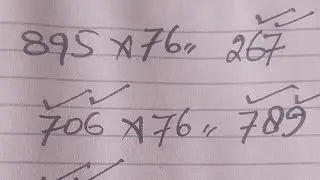 895 × 76 " 267
706 × 76 " 789